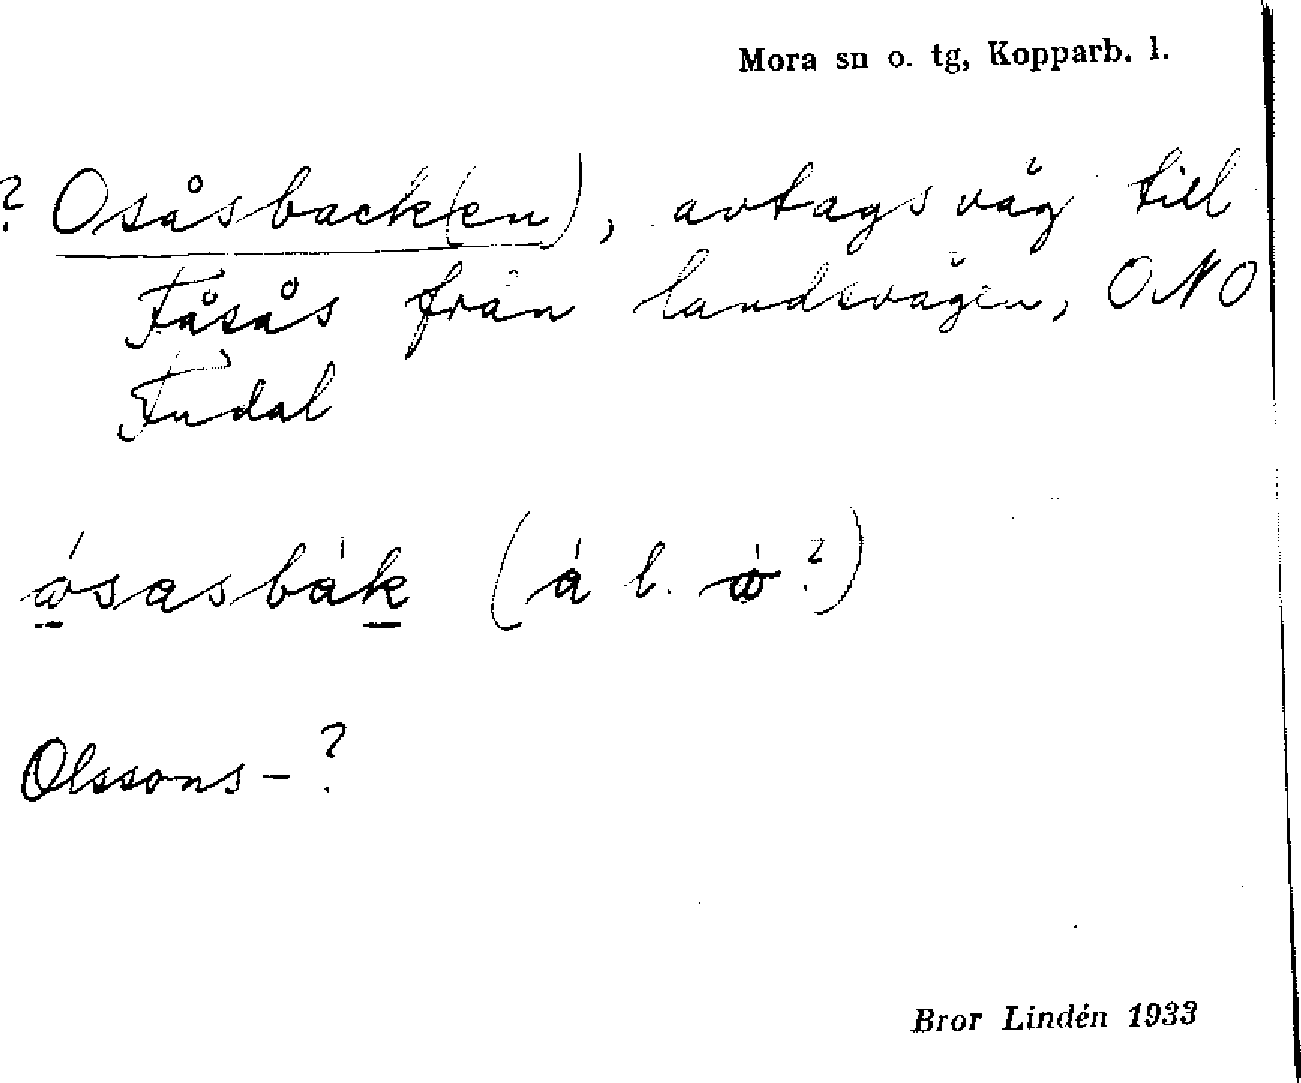 Mora sn o. tg, Kopparb. l.
? Osåsback(en), avtagsväg till
Fåsås från landsvägen, ONO
Fudal
ósasbàk (á l. ó?)
Olssons-?
Bror Lindén 1933